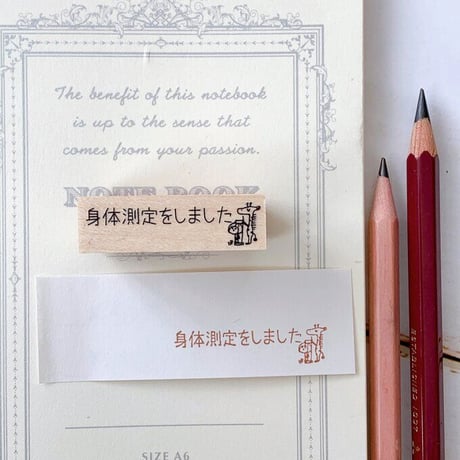 The benefit of this notebook
is up to the sense that
comes from your passion.
NOTE BOOK
身体測定をしました
身体測定をしました
SIZE A6
ESTABLISHED 1887